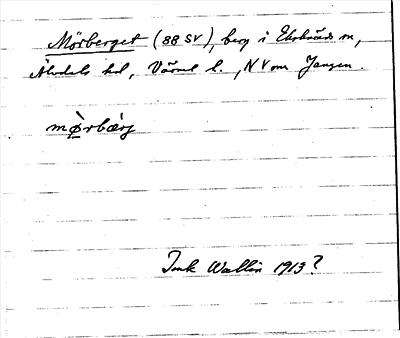 Mörberget (88 SV), berg i Ekshärads sn,
Älvdals hd, Värml l., NV om Jangen.
mø̀rbærj
Ink Wallin 1913?